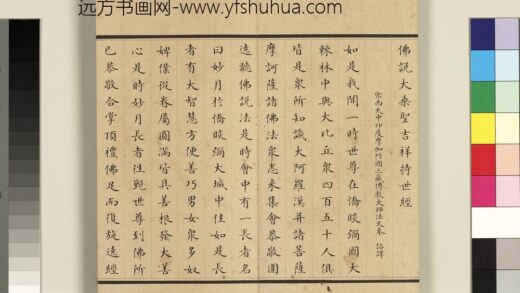 远方书画网-www.yfshuhua.com
佛說大乘聖吉祥持世經
宋西天中印度摩伽陀國三藏傳教大師法天奉 詔譯
如是我聞一時世尊在憍睒彌國大
棘林中與大苾芻眾四百五十人俱
皆是眾所知識大阿羅漢并諸菩薩
摩訶薩諸佛法眾悉來集會恭敬圍
遶聽佛說法是時會中有一長者名
曰妙月於憍睒彌大城中住如是長
者有大智慧方便善巧男女眾多奴
婢僕從眷屬圓滿皆具善根發大善
心是時妙月長者往觀世尊到佛所
已恭敬合掌頂禮佛足而復旋遶經